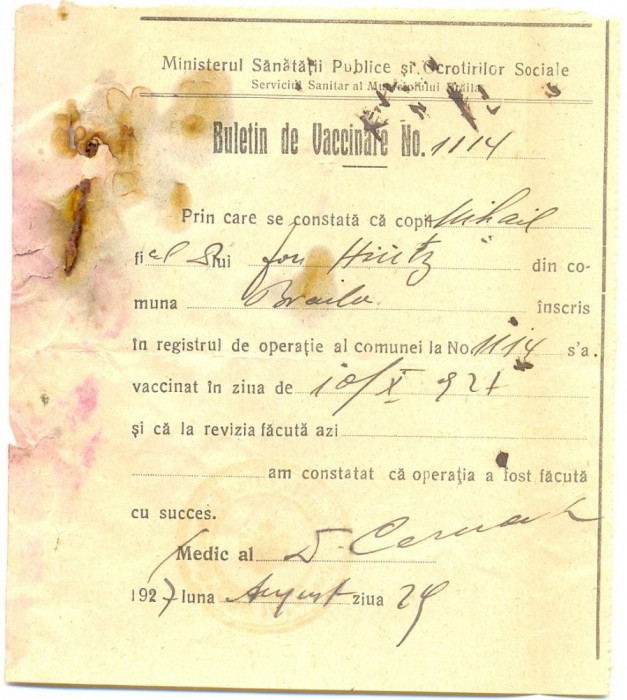 Ministerul Sănătăţii Publice şi Ocrotirilor Sociale
Serviciul Sanitar al Municipiului Brăila
Buletin de Vaccinare No. 1114
Prin care se constată că copil Mihail
fi al D lui Ion din co-
muna Braila înscris
în registrul de operaţie al comunei la No. 1114 s'a
vaccinat în ziua de 10/X 927
şi că la revizia făcută azi
am constatat că operaţia a fost făcută
cu succes.
Medic al
1927 luna August ziua 29